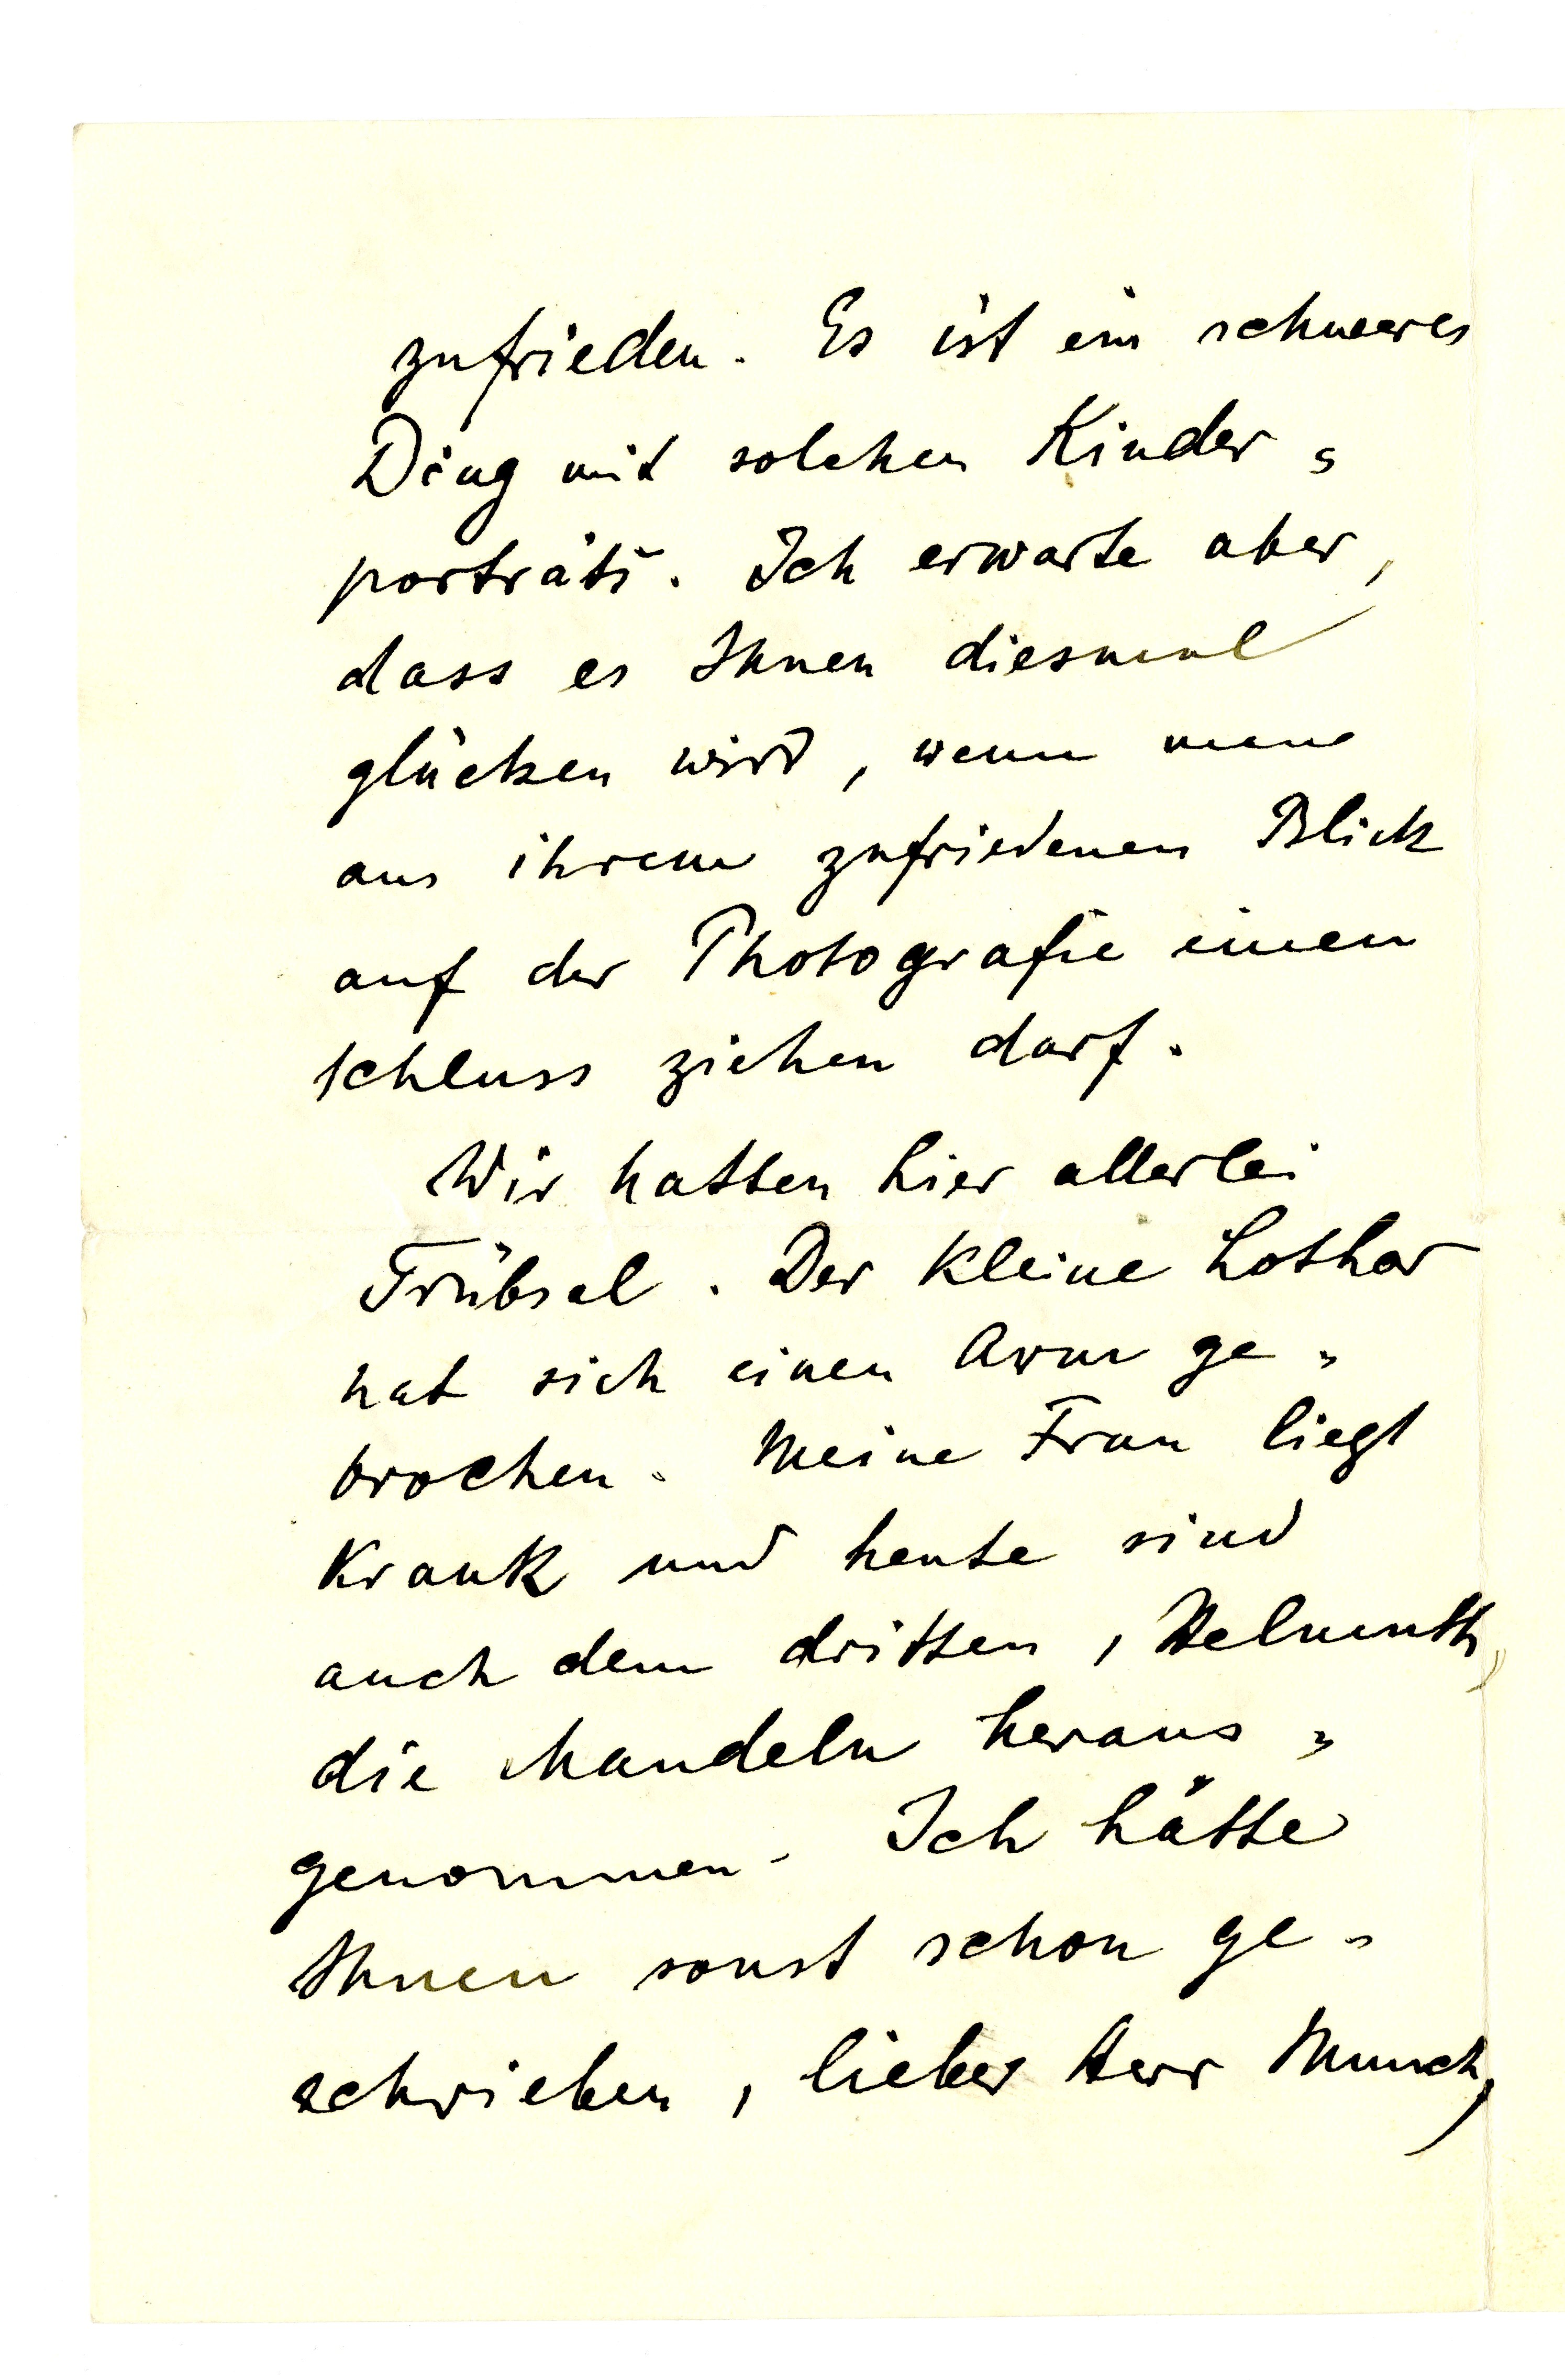 zufrieden. Es ist ein schweres
Ding mit solchen Kinder=
porträts. Ich erwarte aber,
dass es Ihnen diesmal
glücken wird, wenn man
aus ihrem zufriedenen Blick
auf der Photografie einen
Schluss ziehen darf.
Wir hatten hier allerlei
Trübsal. Der kleine Lothar
hat sich einen Arm ge=
brochen. Meine Frau liegt
krank und heute sind
auch dem dritten, Helmuth,
die Mandeln heraus=
genommen. Ich hätte
Ihnen sonst schon ge=
schrieben, lieber Herr Munch,